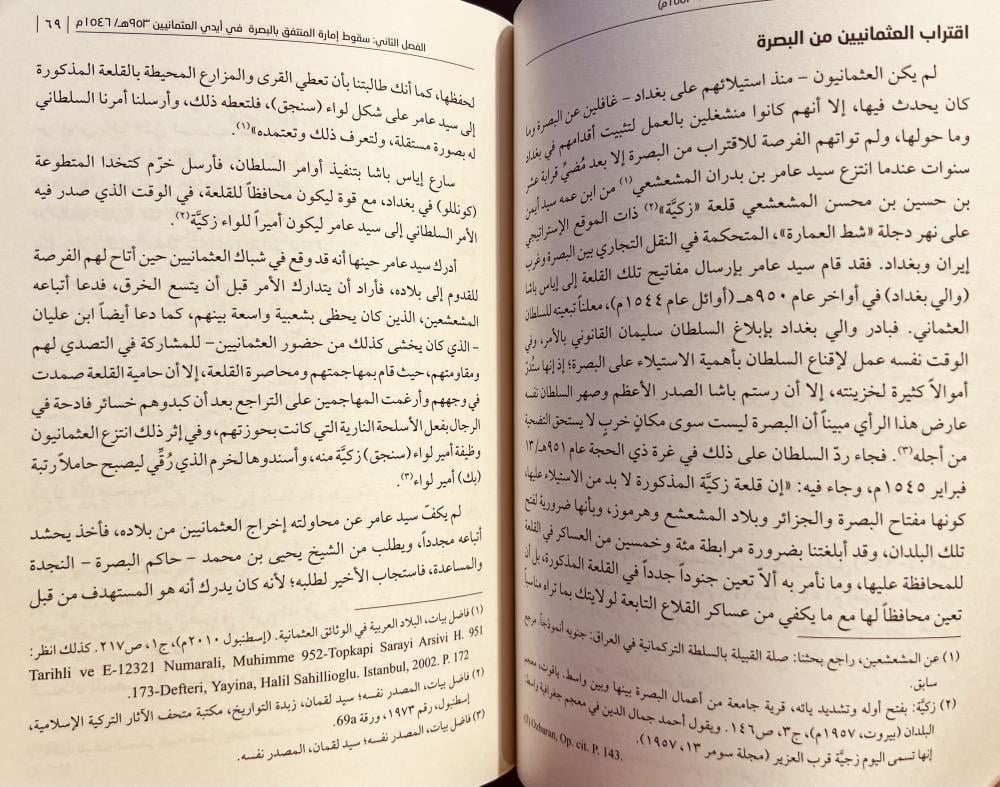 اقتراب العثمانيين من البصرة
لم يكن العثمانيون – منذ استيلائهم على بغداد – غافلين عن البصرة وما
كان يحدث فيها، إلا أنهم كانوا منشغلين بالعمل لتثبيت أقدامهم في بغداد
وما حولها، ولم تواتهم الفرصة للاقتراب من البصرة إلا بعد مُضيِّ قرابة عشر
سنوات عندما انتزع سيد عامر بن بدران المشعشعي(١) من ابن عمه سيد أيمن
بن حسين بن محسن المشعشعي قلعة «زكيَّة»(٢) ذات الموقع الإستراتيجي
على نهر دجلة «شط العمارة»، المتحكمة في النقل التجاري بين البصرة وغرب
إيران وبغداد. فقد قام سيد عامر بإرسال مفاتيح تلك القلعة إلى إياس باشا
(والي بغداد) في أواخر عام ٩٥٠هـ (أوائل عام ١٥٤٤م)، معلناً تبعيته للسلطان
العثماني. فبادر والي بغداد بإبلاغ السلطان سليمان القانوني بالأمر، وفي
الوقت نفسه عمل لإقناع السلطان بأهمية الاستيلاء على البصرة؛ إذ إنها ستُدرّ
أموالاً كثيرة لخزينته، إلا أن رستم باشا الصدر الأعظم وصهر السلطان نفسه
عارض هذا الرأي مبيناً أن البصرة ليست سوى مكانٍ خربٍ لا يستحق التضحية
من أجله(٣). فجاء ردّ السلطان على ذلك في غرة ذي الحجة عام ٩٥١هـ/١٣
فبراير ١٥٤٥م، وجاء فيه: «إن قلعة زكيَّة المذكورة لا بد من الاستيلاء عليها،
كونها مفتاح البصرة والجزائر وبلاد المشعشع وهرموز، وبأنها ضرورية لفتح
تلك البلدان، وقد أبلغتنا بضرورة مرابطة مئة وخمسين من العساكر في القلعة
للمحافظة عليها، وما نأمر به ألاّ تعين جنوداً جدداً في القلعة المذكورة، بل أن
تعين محافظاً لها مع ما يكفي من عساكر القلاع التابعة لولايتك بما تراه مناسباً
(١) عن المشعشعين، راجع بحثنا: صلة القبيلة بالسلطة التركمانية في العراق: جنوبه أنموذجاً. مرجع
سابق.
(٢) زكيَّة: بفتح أوله وتشديد يائه، قرية جامعة من أعمال البصرة بينها وبين واسط. ياقوت، معجم
البلدان (بيروت، ١٩٥٧م)، ج٣، ص١٤٦. ويقول أحمد جمال الدين في معجم جغرافية واسط:
إنها تسمى اليوم زجيَّة قرب العزير (مجلة سومر ١٣، ١٩٥٧).
Ozbaran, Op. cit. P. 143.
الفصل الثاني: سقوط إمارة المنتفق بالبصرة في أيدي العثمانيين ٩٥٣هـ/١٥٤٦م | ٦٩ |
لحفظها، كما أنك طالبتنا بأن تعطي القرى والمزارع المحيطة بالقلعة المذكورة
إلى سيد عامر على شكل لواء (سنجق)، فلتعطه ذلك، وأرسلنا أمرنا السلطاني
له بصورة مستقلة، ولتعرف ذلك وتعتمده»(١).
سارع إياس باشا بتنفيذ أوامر السلطان، فأرسل خرّم كتخدا المتطوعة
(كونللو) في بغداد، مع قوة ليكون محافظاً للقلعة، في الوقت الذي صدر فيه
الأمر السلطاني إلى سيد عامر ليكون أميراً للواء زكيَّة(٢).
أدرك سيد عامر حينها أنه قد وقع في شباك العثمانيين حين أتاح لهم الفرصة
للقدوم إلى بلاده، فأراد أن يتدارك الأمر قبل أن يتسع الخرق، فدعا أتباعه
المشعشعين، الذين كان يحظى بشعبية واسعة بينهم، كما دعا أيضاً ابن عليان
- الذي كان يخشى كذلك من حضور العثمانيين- للمشاركة في التصدي لهم
ومقاومتهم، حيث قام بمهاجمتهم ومحاصرة القلعة، إلا أن حامية القلعة صمدت
في وجههم وأرغمت المهاجمين على التراجع بعد أن كبدوهم خسائر فادحة في
الرجال بفعل الأسلحة النارية التي كانت بحوزتهم، وفي إثر ذلك انتزع العثمانيون
وظيفة أمير لواء (سنجق) زكيَّة منه، وأسندوها لخرم الذي رُقِّي ليصبح حاملاً رتبة
(بك) أمير لواء(٣).
لم يكفّ سيد عامر عن محاولته إخراج العثمانيين من بلاده، فأخذ يحشد
أتباعه مجدداً، ويطلب من الشيخ يحيى بن محمد – حاكم البصرة – النجدة
والمساعدة، فاستجاب الأخير لطلبه؛ لأنه كان يدرك أنه هو المستهدف من قبل
(١) فاضل بيات، البلاد العربية في الوثائق العثمانية. (إسطنبول ٢٠١٠م)، ج١، ص٢١٧. كذلك انظر:
Tarihli ve E-12321 Numarali, Muhimme 952-Topkapi Sarayi Arsivi H. 951
.173-Defteri, Yayina, Halil Sahillioglu. Istanbul, 2002. P. 172
(٢) فاضل بيات، المصدر نفسه؛ سيد لقمان، زبدة التواريخ، مكتبة متحف الآثار التركية الإسلامية،
إسطنبول، رقم ١٩٧٣، ورقة 69a.
(٣) فاضل بيات، المصدر نفسه؛ سيد لقمان، المصدر نفسه.